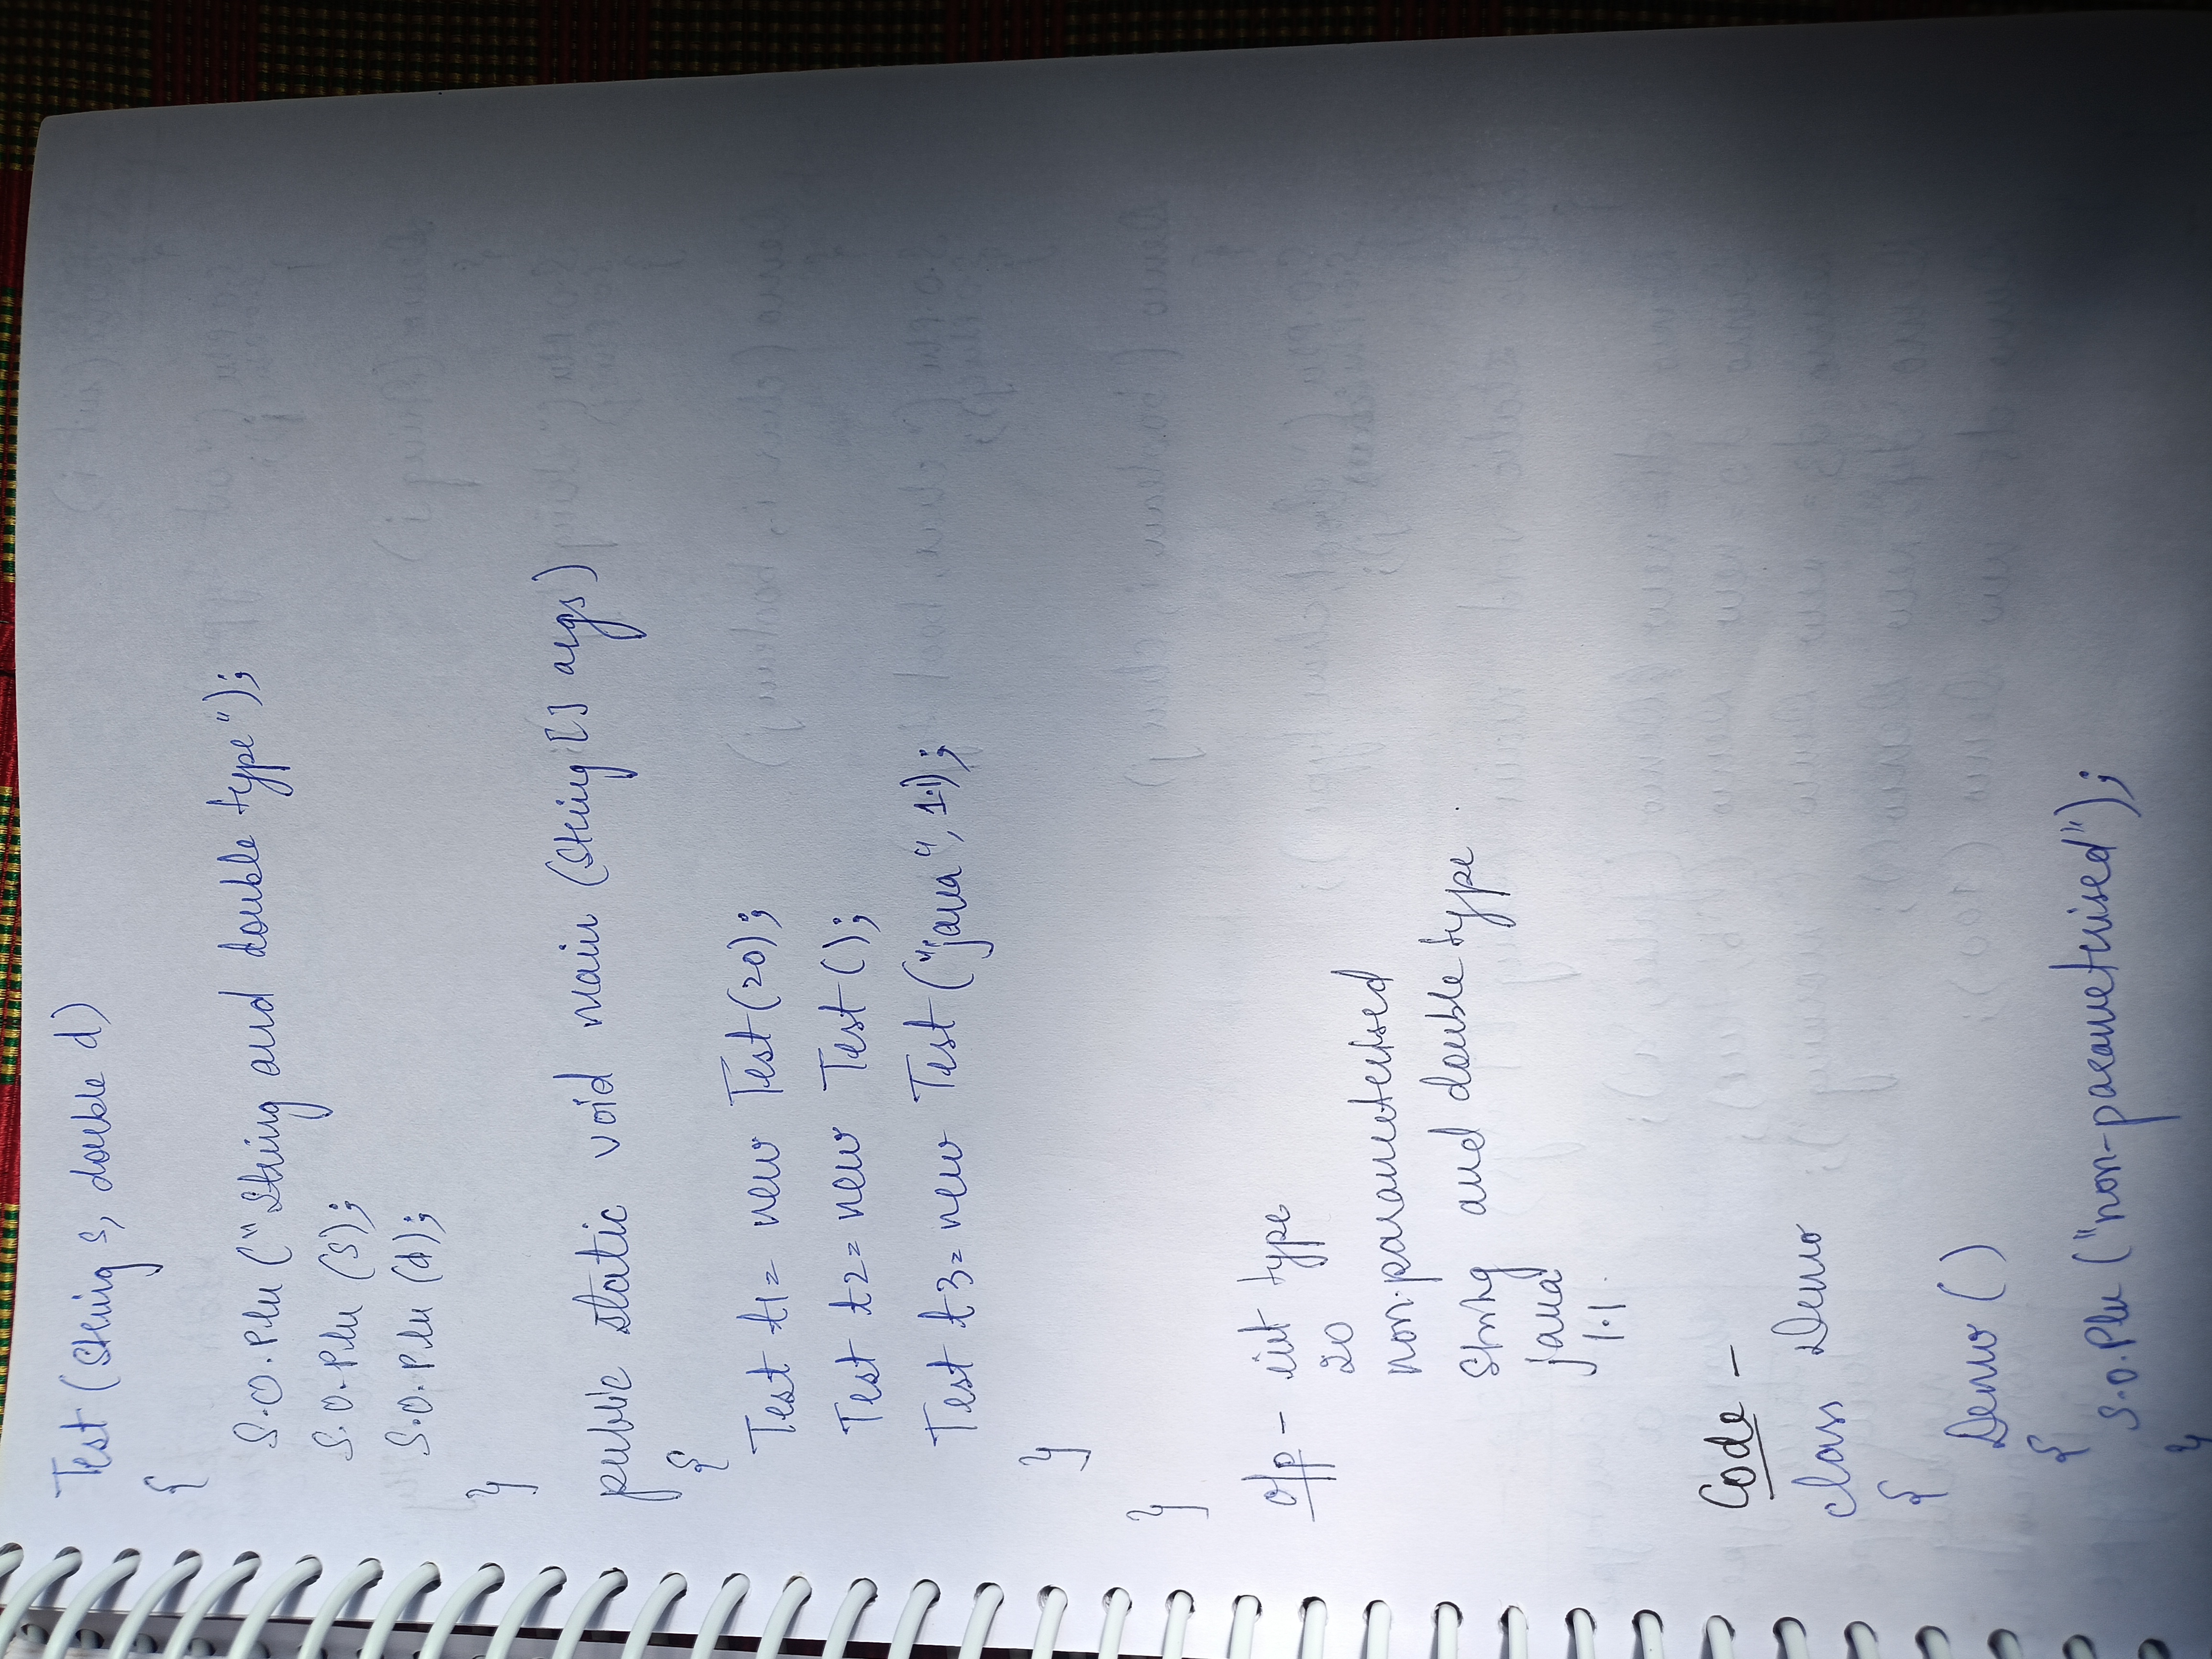 Test (String s, double d)
{
S.O.Pln ("String and double type");
S.O.Pln (s);
S.O.Pln (d);
}
public static void main (String [] args)
{
Test t1= new Test(20);
Test t2= new Test();
Test t3= new Test ("java", 1.1);
}
}
o/p - int type
20
non-parameterised
String and double type
java
1.1
Code -
class Demo
{
Demo ()
{
S.O.Pln ("non-parameterised");
}